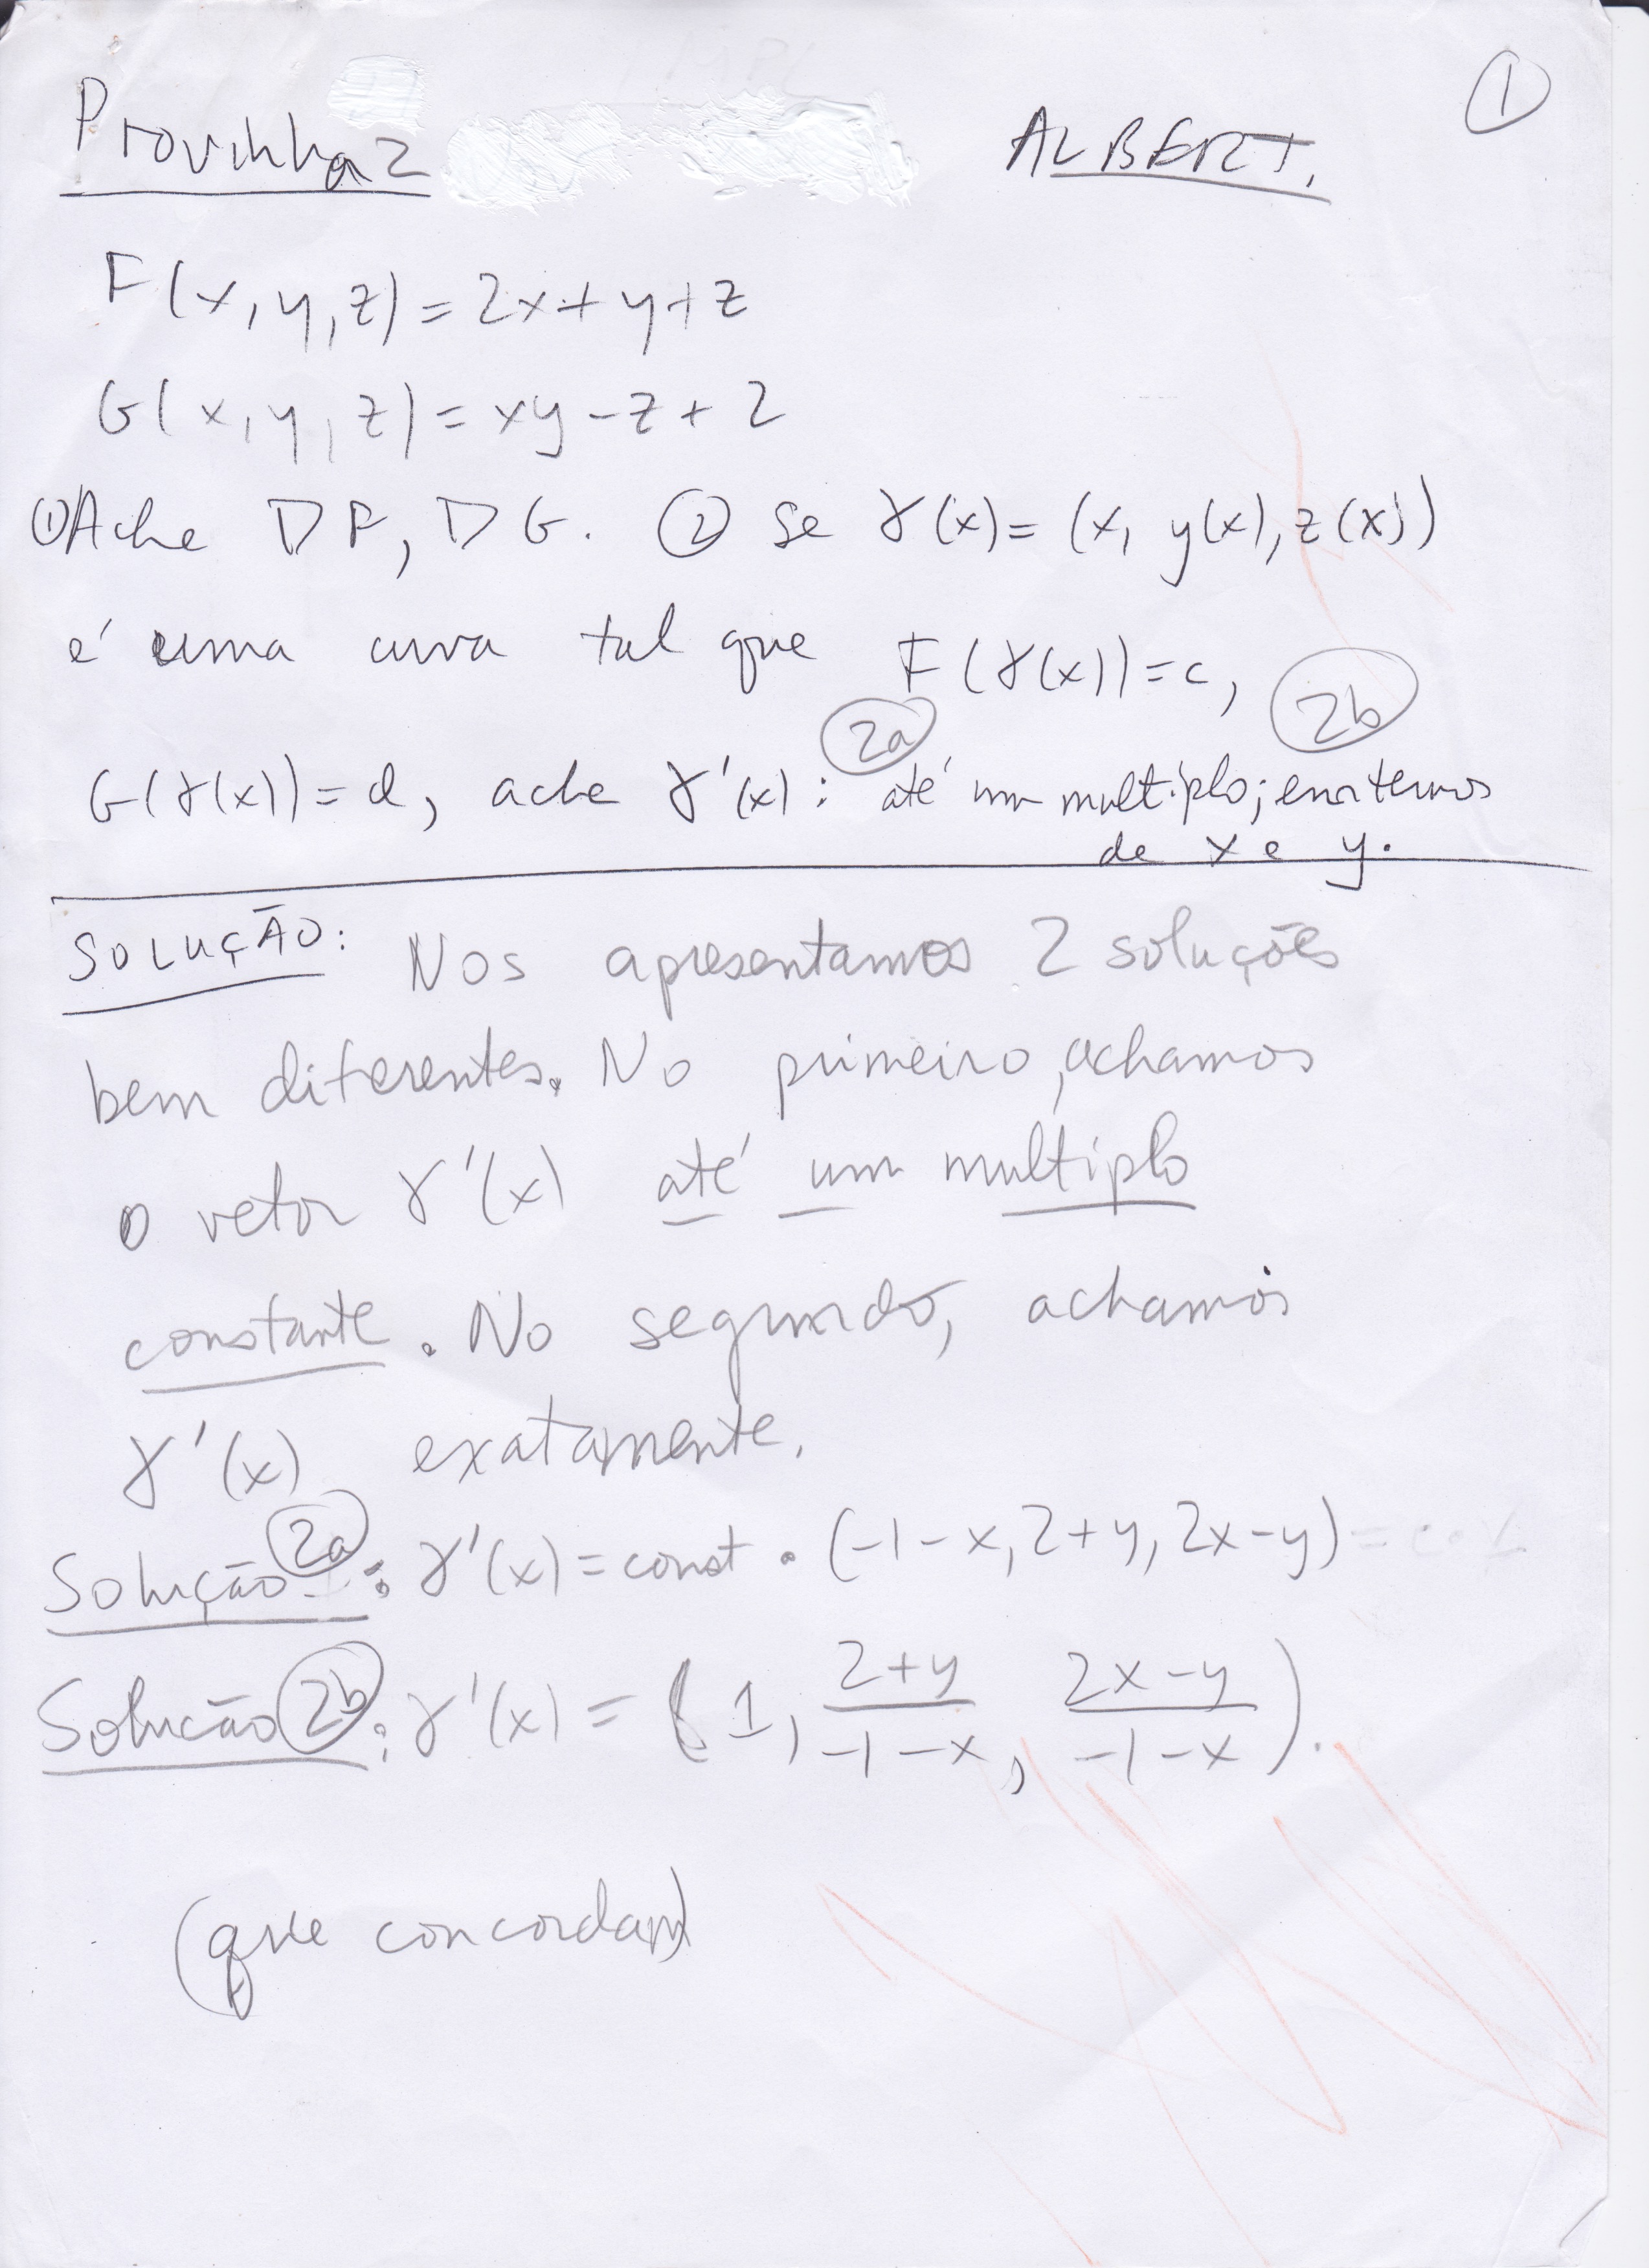 ①
Provinha 2 ALBERT.
F(x,y,z)=2x+y+z
G(x,y,z)=xy-z+2
①Ache DF, DG. ② Se γ(x)=(x, y(x), z(x))
é uma curva tal que F(γ(x))=c,
2a 2b
G(γ(x))=d, ache γ'(x): até um multiplo; em termos
de x e y.
SOLUÇÃO: Nos apresentamos 2 soluções
bem diferentes. No primeiro, achamos
o vetor γ'(x) até um multiplo
constante. No segundo, achamos
γ'(x) exatamente.
Solução 2a: γ'(x)=const • (-1-x, 2+y, 2x-y)
Solução 2b: γ'(x) = (1, (2+y)/(-1-x), (2x-y)/(-1-x)).
(que concordam)